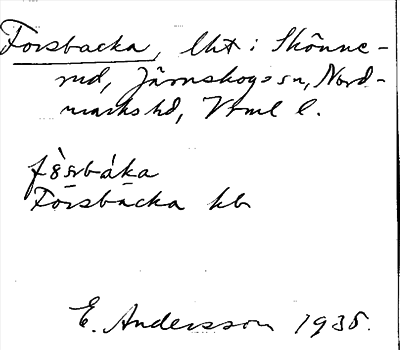 Forsbacka, lht i Skönne-
rud, Järnskogs sn, Nord-
marks hd, Vrml l.
fòs̠báka
Forsbacka kb
E. Andersson 1935.